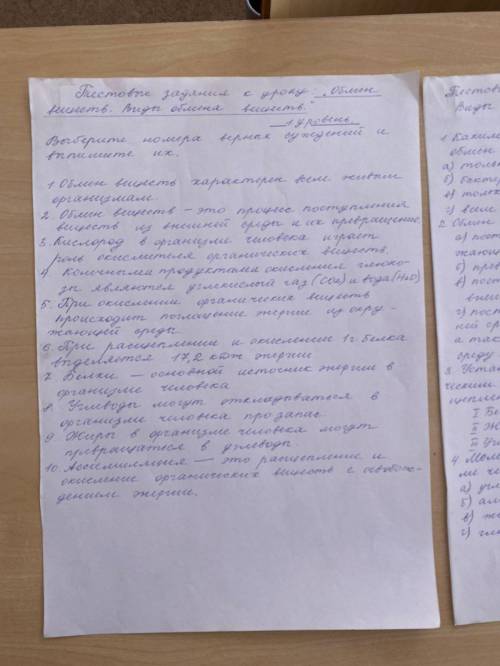 Тестовые задания к уроку: „Обмен
веществ. Виды обмена веществ."
1 уровень
Выберите номера верных суждений и
выпишите их.
1. Обмен веществ характерен всем живым
организмам.
2. Обмен веществ – это процесс поступления
веществ из внешней среды и их превращение
3. Кислород в организме человека играет
роль окислителя органических веществ.
4. Конечными продуктами окисления глюко-
зы являются углекислый газ (CO2) и вода (H2O)
5. При окислении органических веществ
происходит поглощение энергии из окру-
жающей среды
6. При расщеплении и окислении 1г белка
выделяется 17,2 кДж энергии
7. Белки — основной источник энергии в
организме человека
8. Углеводы могут откладываться в
организме человека про запас
9. Жиры в организме человека могут
превращаться в углеводы.
10. Ассимиляция — это расщепление и
окисление органических веществ с освобож-
дением энергии.
Тестовы
Виды
1. Каким
обмен
а) толь
б) бактер
в) толь
г) всем
2. Обмен
а) пост
жающ
б) пре
в) пост
вне
г) пост
ней ср
а так
среду
3. Устан
ческим
щеплен
I Бе
II Ж
III Угл
4. Мом
ме че
а) угл
б) ам
в) жи
г) глю